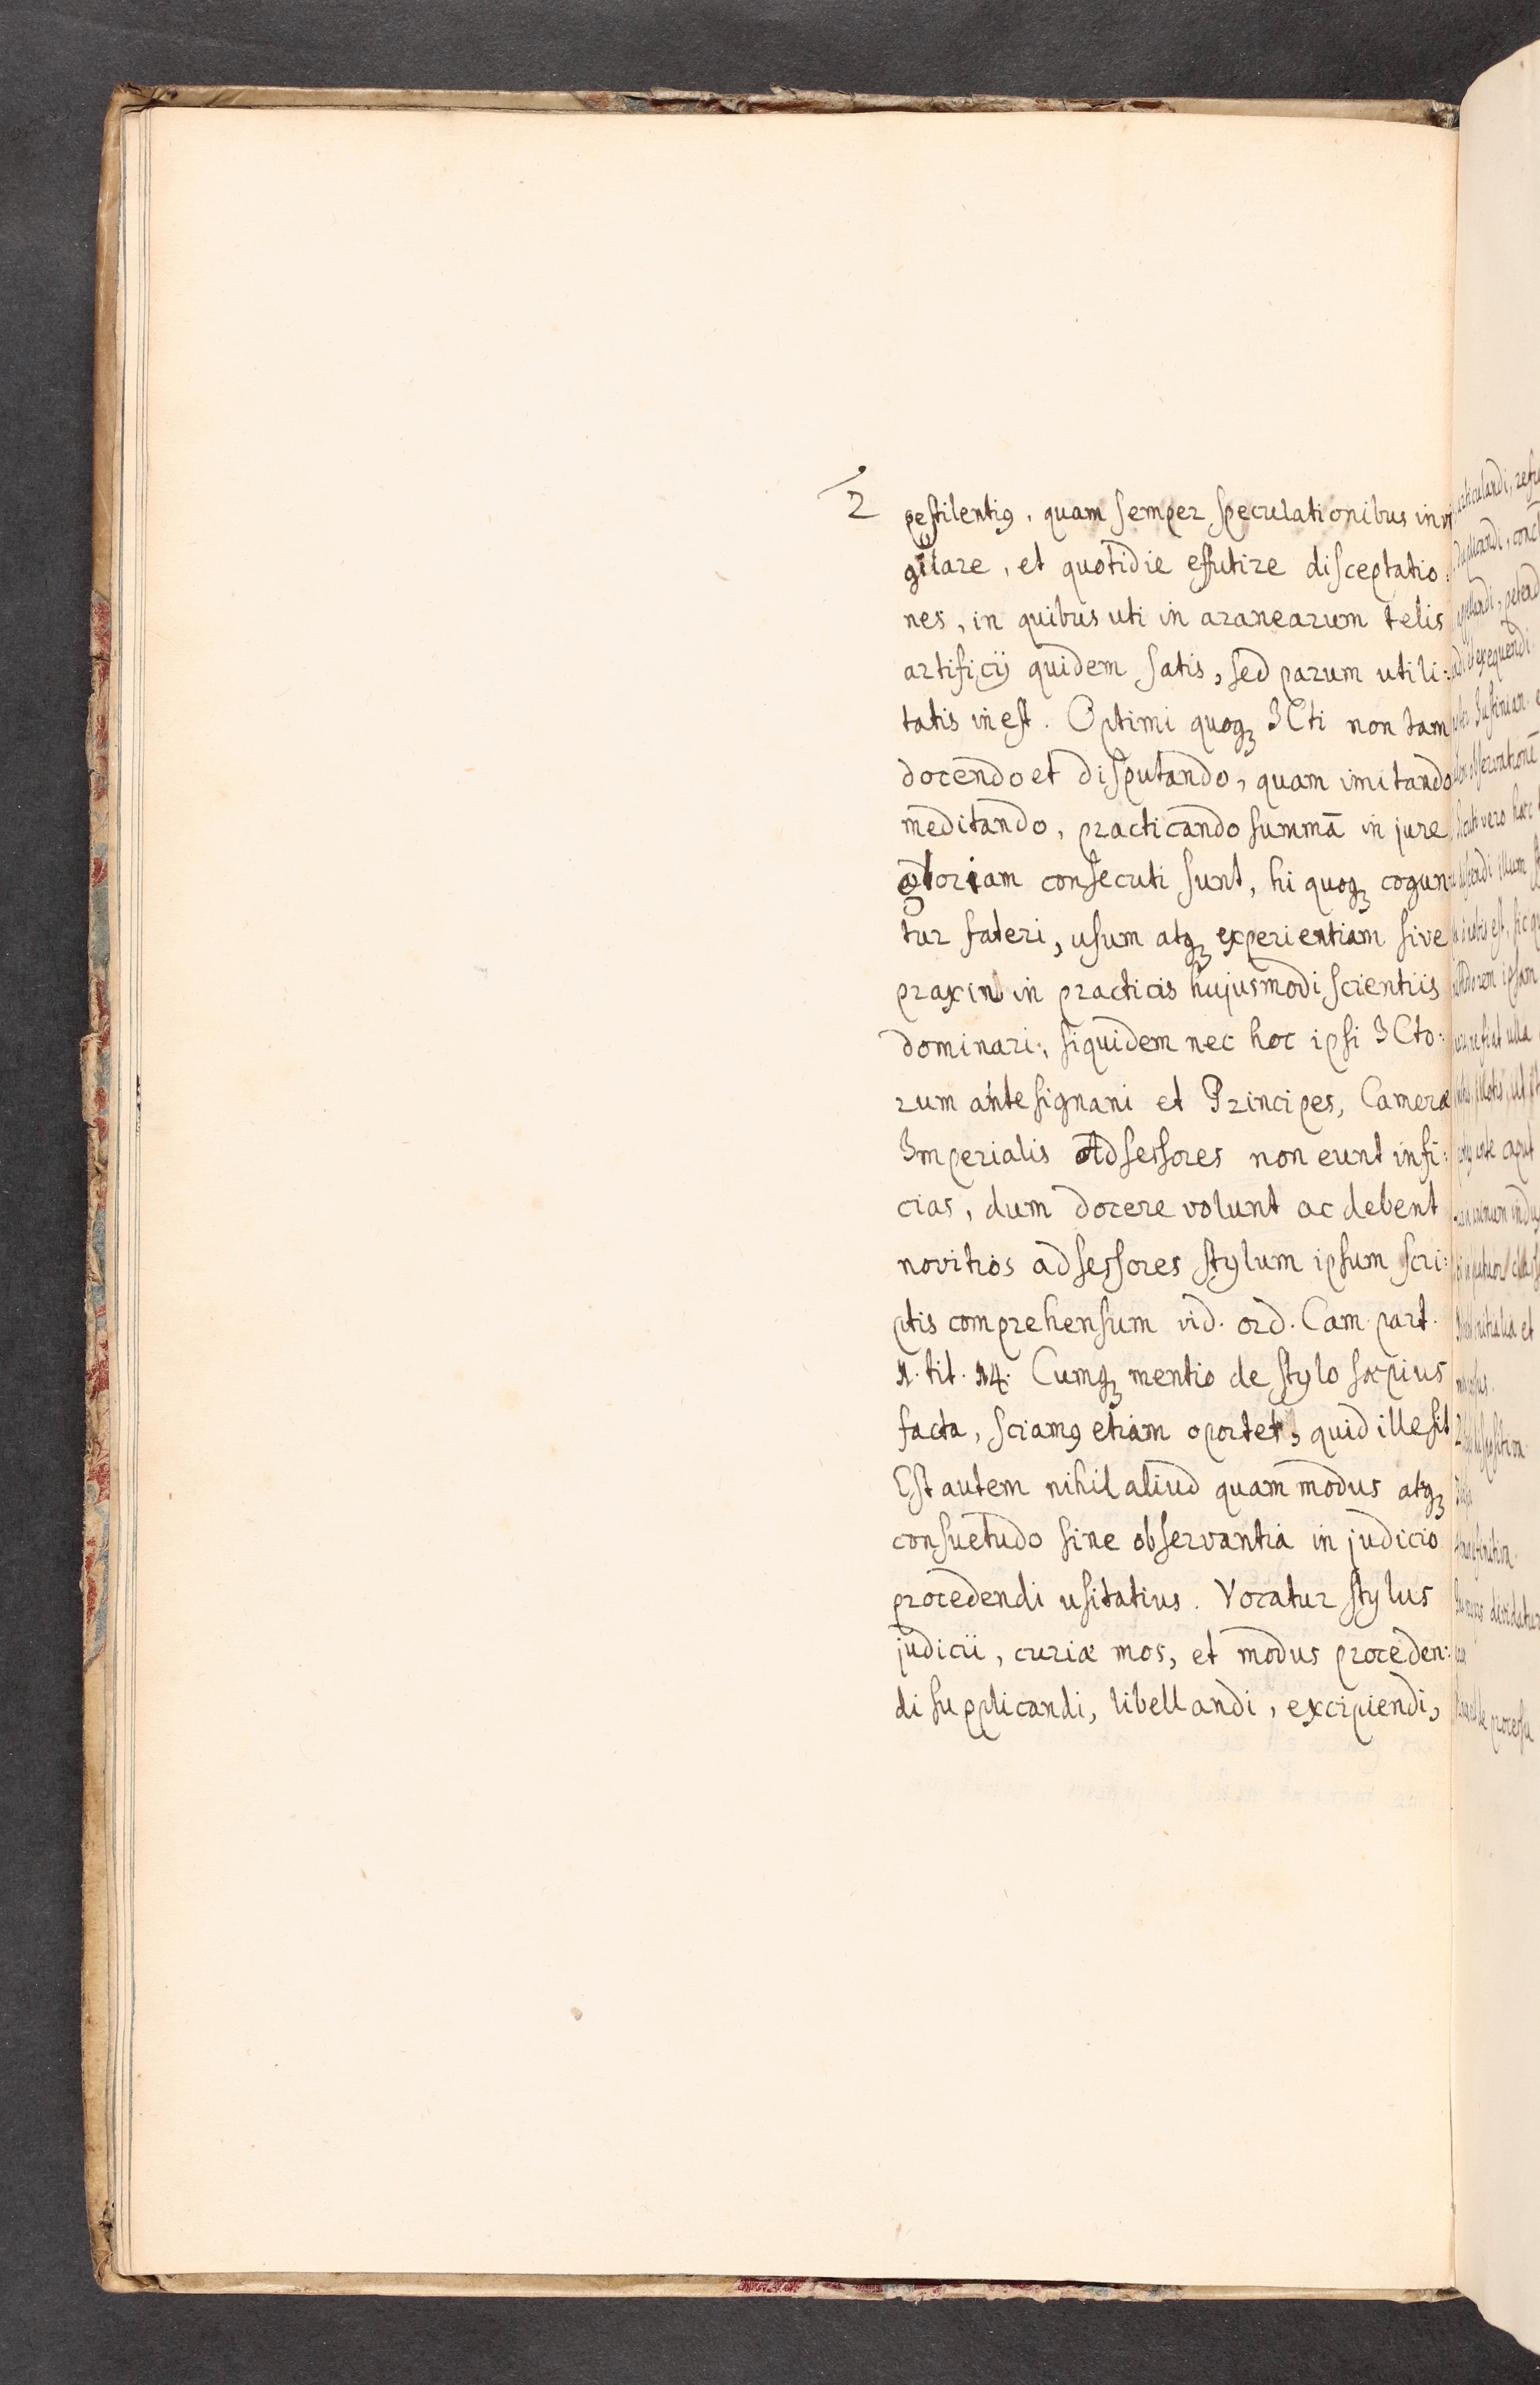 2
pestilentiꝰ, quam semper speculationibus invi
gilare, et quotidie effutire disceptatio:
nes, in quibus uti in aranearum telis
artificij quidem satis, sed parum utili:
tatis inest. Optimi quoqꝫ ICti non tam
docendo et disputando, quam imitando
meditando, practicando summā in jure
gloriam consecuti sunt, hi quoqꝫ cogun:
tur fateri, usum atqꝫ experientiam sive
praxin in practicis hujusmodi scientiis
dominari:, siquidem nec hoc ipsi ICto:
rum antesignani et Principes, Cameræ
Imperialis Adsessores non eunt infi:
cias, dum docere volunt ac debent
novitios adsessores stylum ipsum scri:
ptis comprehensum vid. ord. Cam. part.
1. tit. 14. Cumqꝫ mentio de stylo sæpius
facta, sciamꝰ etiam oportet, quid ille sit
Est autem nihil aliud quam modus atqꝫ
consuetudo sine observantia in judicio
procedendi usitatius. Vocatur stylus
judicii, curiæ mos, et modus proceden:
di supplicandi, libellandi, excipiendi,